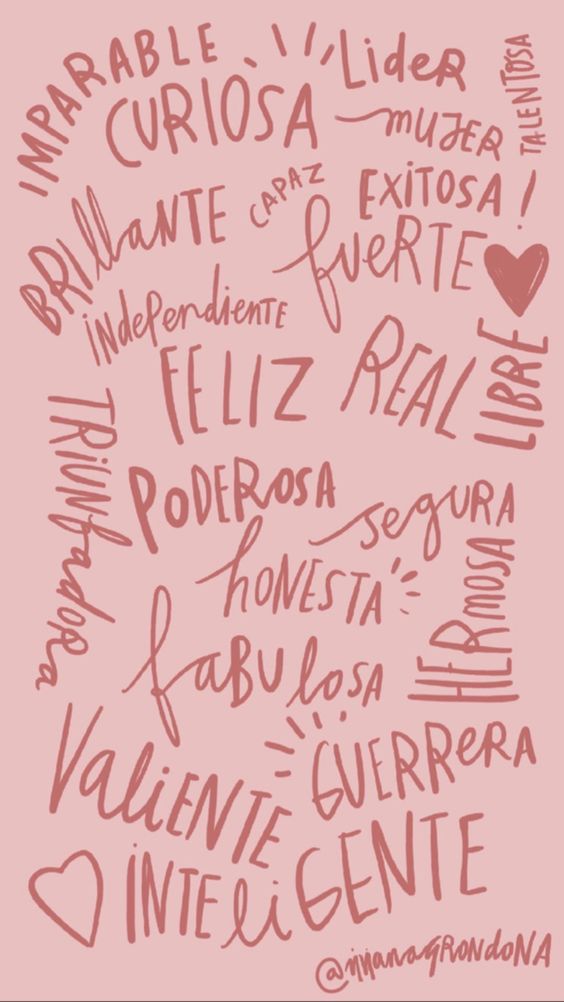 IMPARABLE
CURIOSA
Lider
MUJER
TALENTOSA
BRILLANTE
CAPAZ
EXITOSA!
FUERTE
independiente
FELIZ
REAL
LIBRE
TRIUNFADORA
PODEROSA
SEGURA
HONESTA
HERMOSA
FABULOSA
VALIENTE
GUERRERA
INTELIGENTE